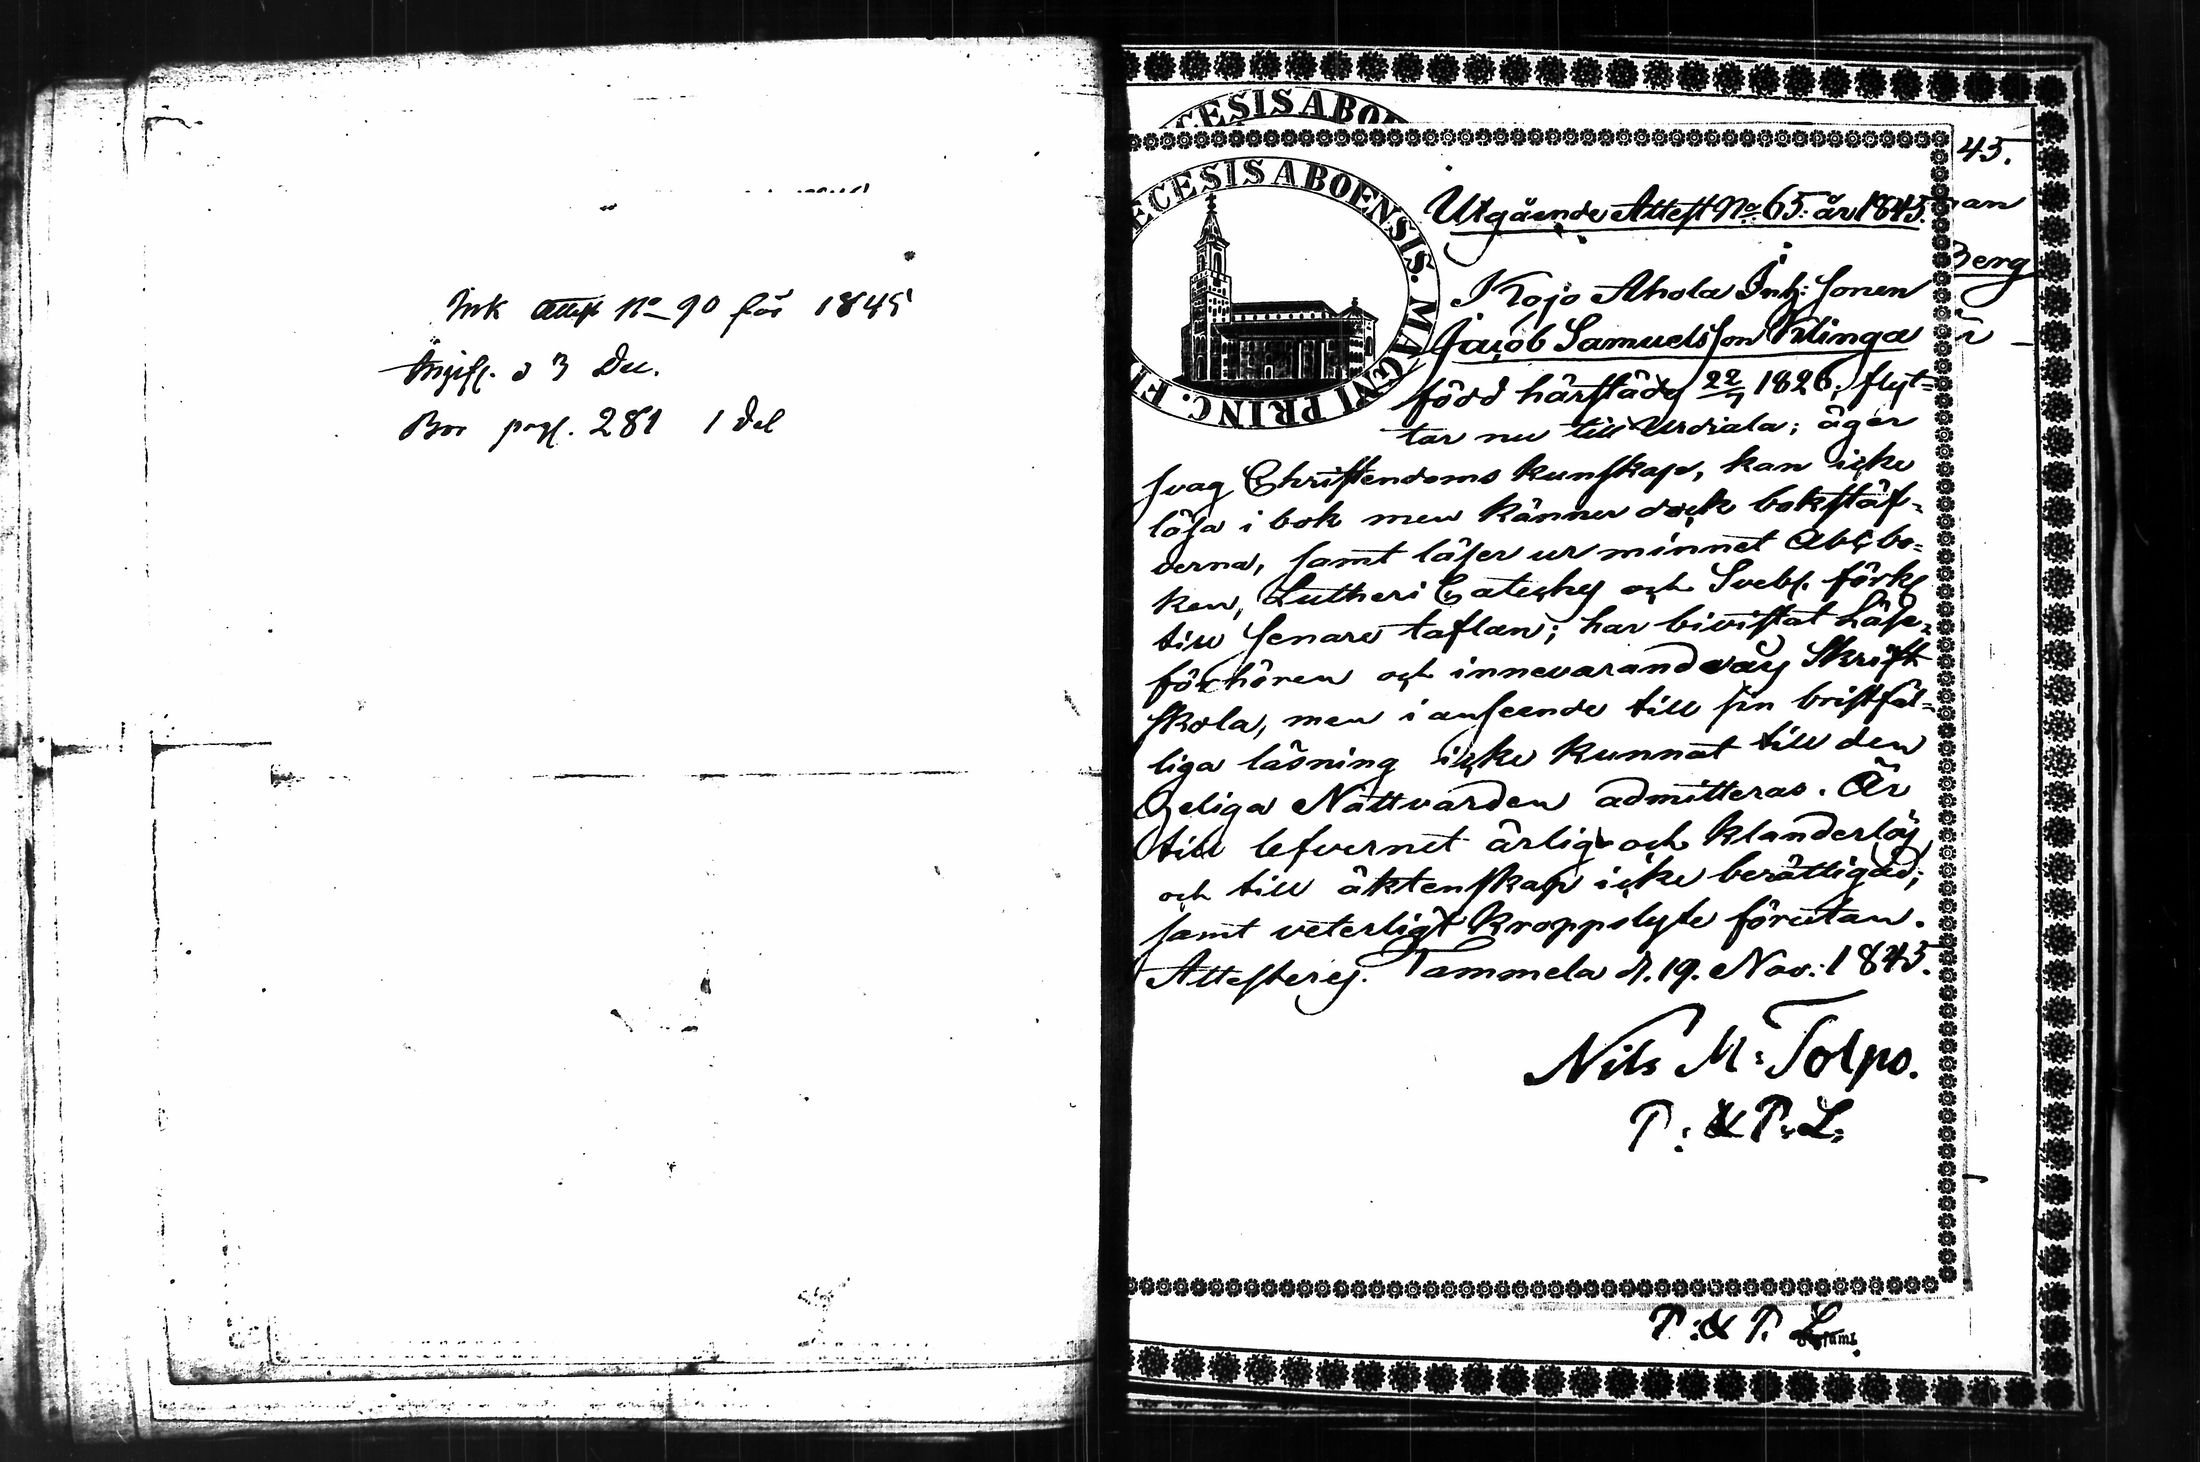 Ink attest No 90 för 1845
Angifs. d 3 Dec.
Bor pag. 281 1 del
ECESIS ABO
43.
ECESIS ABOENSIS. MAGNI PRINC. FI
Utgående Attest No 65: år 1843.
an
Berg
Kojo Ahola Inh: sonen
Jacob Samuelsson Klinga
född härstädes 22/7 1826, flyt-
tar nu till Urdiala; äger
svag Christendoms kunskap, kan icke
läsa i bok men känner dock bokstäf-
verna, samt läser ur minnet Abcbo-
ken, Lutheri Catechs och Sveb. förkl
till senare taflan; har bivistat Läse-
förhören och innevarande års Skrift
skola, men i anseende till sin bristfäl-
liga läsning icke kunnat till den
Heliga Nattvarden admitteras. Är
till lefvernet ärlig och klanderlös
och till äktenskap icke berättigad;
samt veterligt kroppslyte förutan.
Attesteras. Tammela d. 19. Nov: 1843.
Nils M: Tolpo.
P: & P: L:
P: & P. L